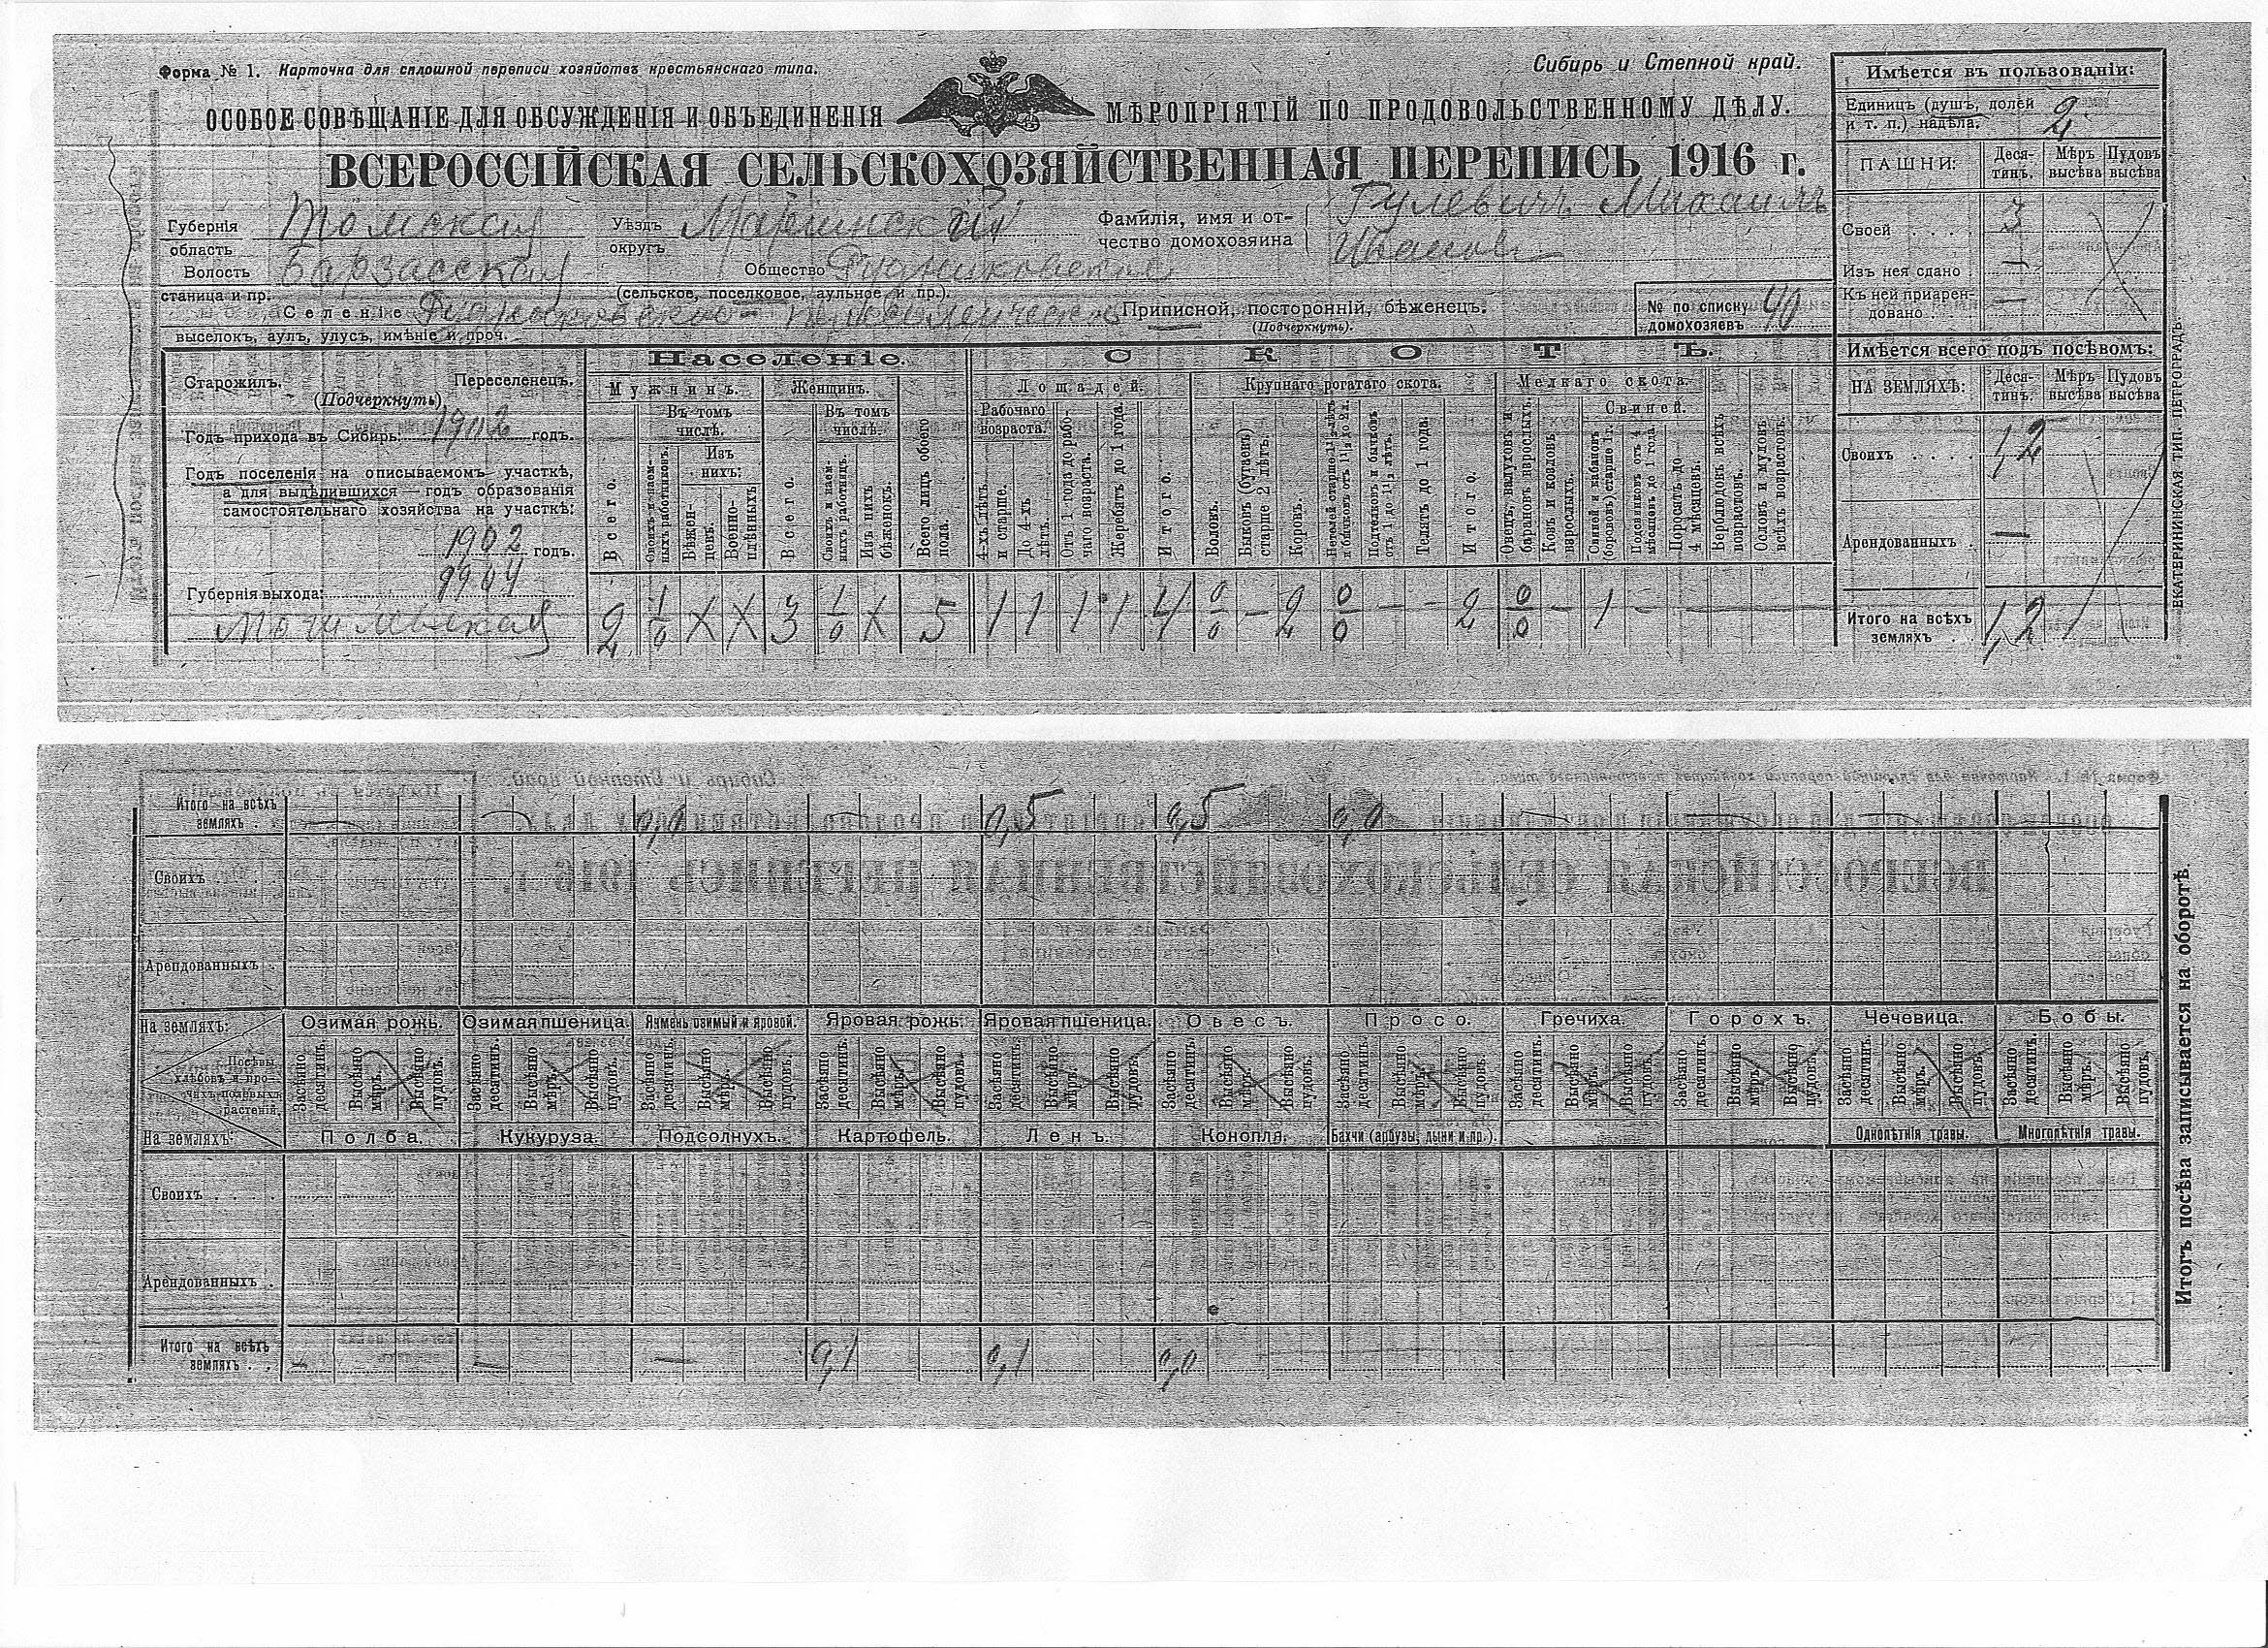 Форма № 1. Карточка для сплошной переписи хозяйствъ крестьянскаго типа.
Сибирь и Степной край.
ОСОБОЕ СОВѢЩАНІЕ ДЛЯ ОБСУЖДЕНІЯ И ОБЪЕДИНЕНІЯ МѢРОПРІЯТІЙ ПО ПРОДОВОЛЬСТВЕННОМУ ДѢЛУ.
ВСЕРОССІЙСКАЯ СЕЛЬСКОХОЗЯЙСТВЕННАЯ ПЕРЕПИСЬ 1916 г.
Губернія Томская
область
Уѣздъ Маріинскій
округъ
Фамилія, имя и отчество домохозяина Гулевичъ Михаилъ
Иванов
Волость Барзасская
станица и пр.
Общество
(сельское, поселковое, аульное и пр.).
Селеніе
выселокъ, аулъ, улусъ, имѣніе и проч.
Приписной, посторонній, бѣженецъ.
(Подчеркнуть).
№ по списку домохозяевъ 40
Старожилъ. Переселенецъ.
(Подчеркнуть)
Годъ прихода въ Сибирь: 1902 годъ.
Годъ поселенія на описываемомъ участкѣ,
а для выдѣлившихся — годъ образованія
самостоятельнаго хозяйства на участкѣ:
1902 годъ.
1904
Губернія выхода:
Могилевская
Населеніе.
Мужчинъ. Женщинъ.
Всего. Въ томъ числѣ. Своихъ и наемныхъ работниковъ. Изъ нихъ: Бѣженцевъ. Военноплѣнныхъ
Всего. Въ томъ числѣ. Своихъ и наемныхъ работницъ. Изъ нихъ бѣженокъ.
Всего лицъ обоего пола.
2 1/0 X X 3 1/0 X 5
СКОТЪ.
Лошадей. Крупнаго рогатаго скота. Мелкаго скота.
Рабочаго возраста. 4-хъ лѣтъ и старше. До 4-хъ лѣтъ. Отъ 1 года до рабочаго возраста. Жеребятъ до 1 года. Итого.
Воловъ. Быковъ (бугаевъ) старше 2 лѣтъ. Коровъ. Нетелей старше 1½ лѣтъ и бычковъ отъ 1½ до 2 л. Подтелковъ и бычковъ отъ 1 до 1½ лѣтъ. Телятъ до 1 года. Итого.
Овецъ, валуховъ и барановъ взрослыхъ. Козъ и козловъ взрослыхъ. Свиней. Свиней и кабановъ (борововъ) старше 1 г. Подсвинковъ отъ 4 мѣсяцевъ до 1 года. Поросятъ до 4 мѣсяцевъ. Верблюдовъ всѣхъ возрастовъ. Ословъ и муловъ всѣхъ возрастовъ.
1 1 1 1 4 0/0 — 2 0/0 — — 2 0/0 — 1 —
Имѣется въ пользованіи:
Единицъ (душъ, долей и т. п.) надѣла. 2
ПАШНИ: Десятинъ. Мѣръ высѣва Пудовъ высѣва
Своей 3
Изъ нея сдано —
Къ ней приарендовано —
Имѣется всего подъ посѣвомъ:
НА ЗЕМЛЯХЪ: Десятинъ. Мѣръ высѣва Пудовъ высѣва
Своихъ 1,2
Арендованныхъ —
Итого на всѣхъ земляхъ 1,2
ЕКАТЕРИНИНСКАЯ ТИП. ПЕТРОГРАДЪ.
Итого на всѣхъ земляхъ — — 0,5 0,5 0,0
Своихъ
Арендованныхъ
На земляхъ: Озимая рожь. Озимая пшеница. Ячмень озимый и яровой. Яровая рожь. Яровая пшеница. Овесъ. Просо. Гречиха. Горохъ. Чечевица. Бобы.
Посѣвы хлѣбовъ и прочихъ полевыхъ растеній.
Засѣяно десятинъ. Высѣяно мѣръ. Высѣяно пудовъ.
На земляхъ: Полба. Кукуруза. Подсолнухъ. Картофель. Ленъ. Конопля. Бахчи (арбузы, дыни и пр.). Однолѣтнія травы. Многолѣтнія травы.
Своихъ
Арендованныхъ
Итого на всѣхъ земляхъ — — — 0,1 0,1 0,0
Итогъ посѣва записывается на оборотѣ.